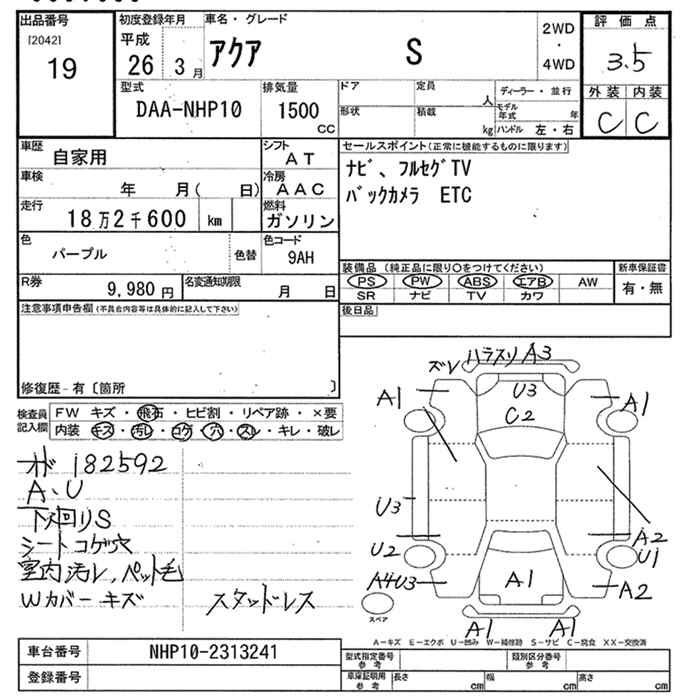 出品番号
[2042]
19
初度登録年月
平成
26 3 月
車名・グレード
アクア S
2WD
・
4WD
評価点
3.5
外装 内装
C C
型式
DAA-NHP10
排気量
1500
CC
ドア
定員
人
形状
積載
kg
ディーラー・並行
モデル年式 年
ハンドル 左・右
車歴
自家用
シフト
AT
車検
年 月( 日)
冷房
AAC
走行
18万2千600 km
燃料
ガソリン
色
パープル
色替
色コード
9AH
R券
9,980 円
名変通知期限
月 日
セールスポイント(正常に機能するものに限ります)
ナビ、フルセグTV
バックカメラ ETC
装備品 (純正品に限り○をつけてください)
PS PW ABS エアB AW
SR ナビ TV カワ
新車保証書
有・無
後日品
注意事項申告欄(不具合内容等は具体的に記入して下さい)
修復歴-有〔箇所 〕
検査員
記入欄
FW キズ・飛石・ヒビ割・リペア跡・×要
内装 キズ・汚レ・コゲ・穴・スレ・キレ・破レ
オド 182592
A、U
下廻りS
シートコゲ穴
室内汚レ、ペット毛
Wカバーキズ
スタッドレス
ズレ ハラスリ A3
A1
U3
C2
A1
U3
A2
U2
U1
A4U3
A1
A2
スペア
A1
A1
A-キズ E-エクボ U-凹み W-補修跡 S-サビ C-腐食 XX-交換済
車台番号
NHP10-2313241
登録番号
型式指定番号
参考
類別区分番号
参考
車庫証明用
参考
長さ cm
幅 cm
高さ cm